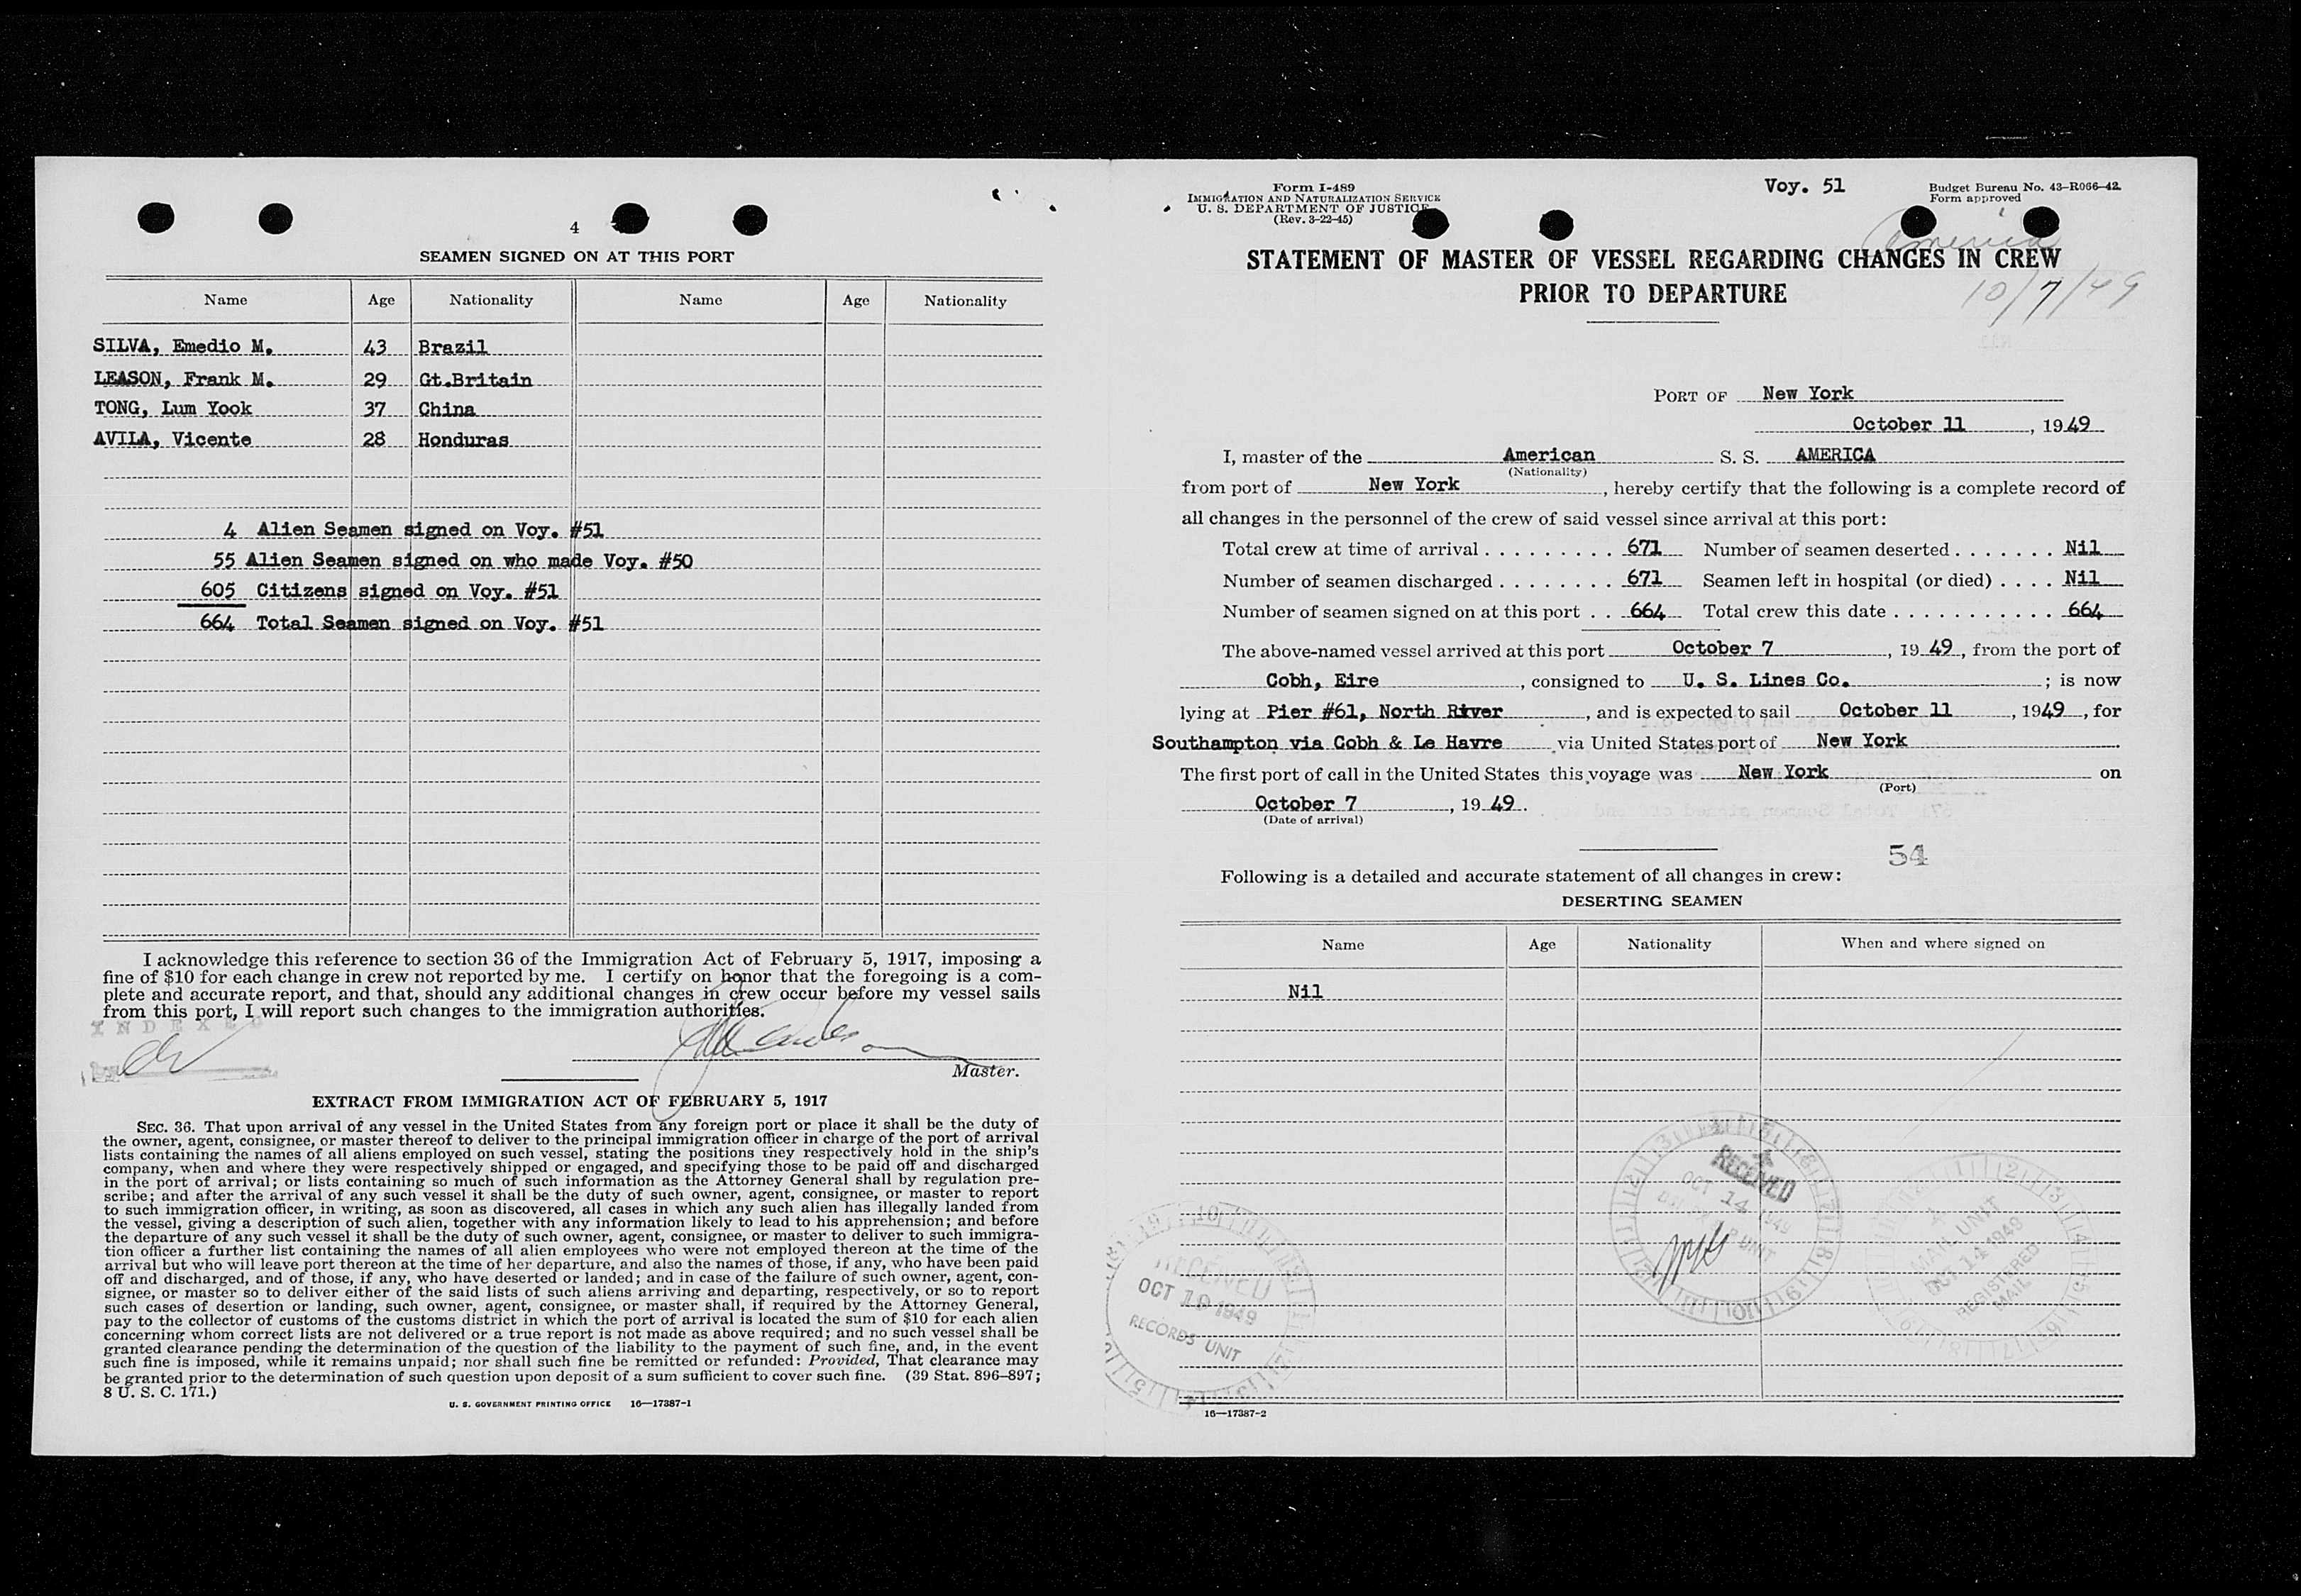 4
SEAMEN SIGNED ON AT THIS PORT
Name Age Nationality Name Age Nationality
SILVA, Emedio M. 43 Brazil
LEASON, Frank M. 29 Gt.Britain
TONG, Lum Yook 37 China
AVILA, Vicente 28 Honduras
4 Alien Seamen signed on Voy. #51
55 Alien Seamen signed on who made Voy. #50
605 Citizens signed on Voy. #51
664 Total Seamen signed on Voy. #51
I acknowledge this reference to section 36 of the Immigration Act of February 5, 1917, imposing a
fine of $10 for each change in crew not reported by me. I certify on honor that the foregoing is a com-
plete and accurate report, and that, should any additional changes in crew occur before my vessel sails
from this port, I will report such changes to the immigration authorities.
INDEXED
Master.
EXTRACT FROM IMMIGRATION ACT OF FEBRUARY 5, 1917
SEC. 36. That upon arrival of any vessel in the United States from any foreign port or place it shall be the duty of
the owner, agent, consignee, or master thereof to deliver to the principal immigration officer in charge of the port of arrival
lists containing the names of all aliens employed on such vessel, stating the positions they respectively hold in the ship's
company, when and where they were respectively shipped or engaged, and specifying those to be paid off and discharged
in the port of arrival; or lists containing so much of such information as the Attorney General shall by regulation pre-
scribe; and after the arrival of any such vessel it shall be the duty of such owner, agent, consignee, or master to report
to such immigration officer, in writing, as soon as discovered, all cases in which any such alien has illegally landed from
the vessel, giving a description of such alien, together with any information likely to lead to his apprehension; and before
the departure of any such vessel it shall be the duty of such owner, agent, consignee, or master to deliver to such immigra-
tion officer a further list containing the names of all alien employees who were not employed thereon at the time of the
arrival but who will leave port thereon at the time of her departure, and also the names of those, if any, who have been paid
off and discharged, and of those, if any, who have deserted or landed; and in case of the failure of such owner, agent, con-
signee, or master so to deliver either of the said lists of such aliens arriving and departing, respectively, or so to report
such cases of desertion or landing, such owner, agent, consignee, or master shall, if required by the Attorney General,
pay to the collector of customs of the customs district in which the port of arrival is located the sum of $10 for each alien
concerning whom correct lists are not delivered or a true report is not made as above required; and no such vessel shall be
granted clearance pending the determination of the question of the liability to the payment of such fine, and, in the event
such fine is imposed, while it remains unpaid; nor shall such fine be remitted or refunded: Provided, That clearance may
be granted prior to the determination of such question upon deposit of a sum sufficient to cover such fine. (39 Stat. 896–897;
8 U. S. C. 171.)
U. S. GOVERNMENT PRINTING OFFICE 16—17387-1
Form I-489
IMMIGRATION AND NATURALIZATION SERVICE
U. S. DEPARTMENT OF JUSTICE
(Rev. 3-22-45)
Voy. 51
Budget Bureau No. 43–R066–42.
Form approved
America
STATEMENT OF MASTER OF VESSEL REGARDING CHANGES IN CREW
PRIOR TO DEPARTURE
10/7/49
PORT OF New York
October 11, 1949
I, master of the American S. S. AMERICA
(Nationality)
from port of New York, hereby certify that the following is a complete record of
all changes in the personnel of the crew of said vessel since arrival at this port:
Total crew at time of arrival . . . . . . . . . 671 Number of seamen deserted . . . . . . . Nil
Number of seamen discharged . . . . . . . . 671 Seamen left in hospital (or died) . . . . Nil
Number of seamen signed on at this port . . 664 Total crew this date . . . . . . . . . . . 664
The above-named vessel arrived at this port October 7, 1949, from the port of
Cobh, Eire, consigned to U. S. Lines Co.; is now
lying at Pier #61, North River, and is expected to sail October 11, 1949, for
Southampton via Cobh & Le Havre via United States port of New York.
The first port of call in the United States this voyage was New York on
(Port)
October 7, 1949.
(Date of arrival)
54
Following is a detailed and accurate statement of all changes in crew:
DESERTING SEAMEN
Name Age Nationality When and where signed on
Nil
RECEIVED
OCT 14 1949
UNIT
MAIL UNIT
OCT 14 1949
REGISTERED
MAIL
RECEIVED
OCT 19 1949
RECORDS UNIT
16—17387-2